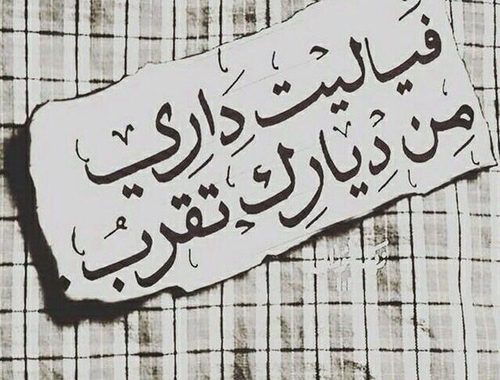 فَياليت دَارِي
مِن دِيارك تقربُ